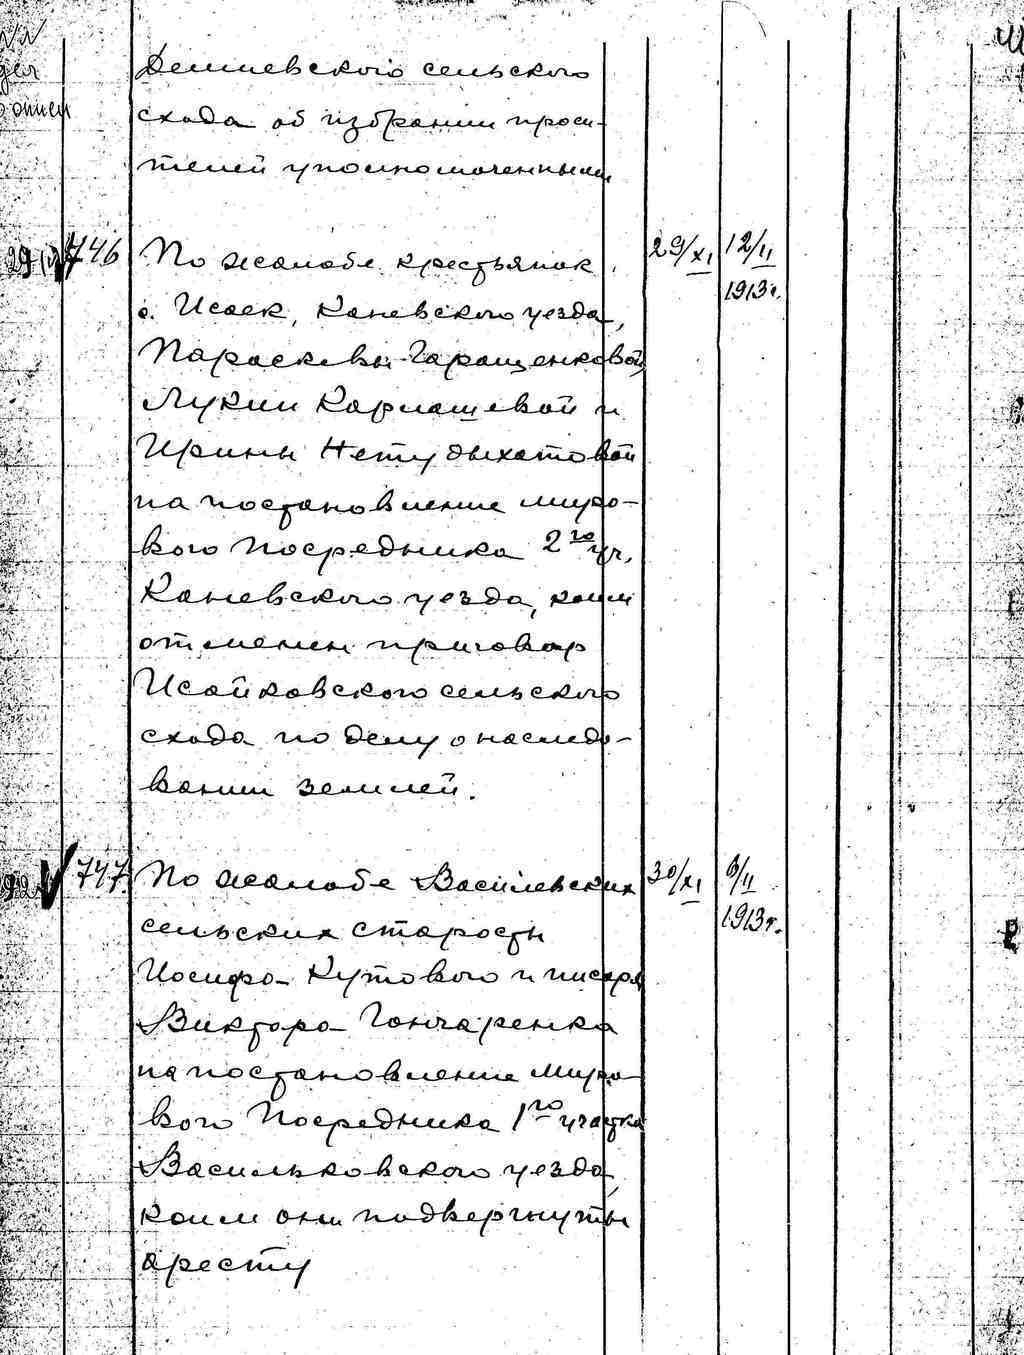 сельского
схода об избрании проси-
телей уполномоченными
746 По жалобе крестьянок 29/XI 12/II 1913 г.
с. Исаек, Каневского уезда,
Парасквы Гаращенковой,
Лукии Карпашевой и
Ирины Нетудыхатовой
на постановление миро-
вого Посредника 2го уч.
Каневского уезда, коим
отменен приговор
Исайковского сельского
схода по делу о наследо-
вании землей.
747. По жалобе Василевских 30/XI 6/II 1913 г.
сельских старосты
Иосифа Кутового и писаря
Виктора Гончаренка
на постановление Миро-
вого Посредника 1го участка
Васильковского уезда,
коим они подвергнуты
аресту